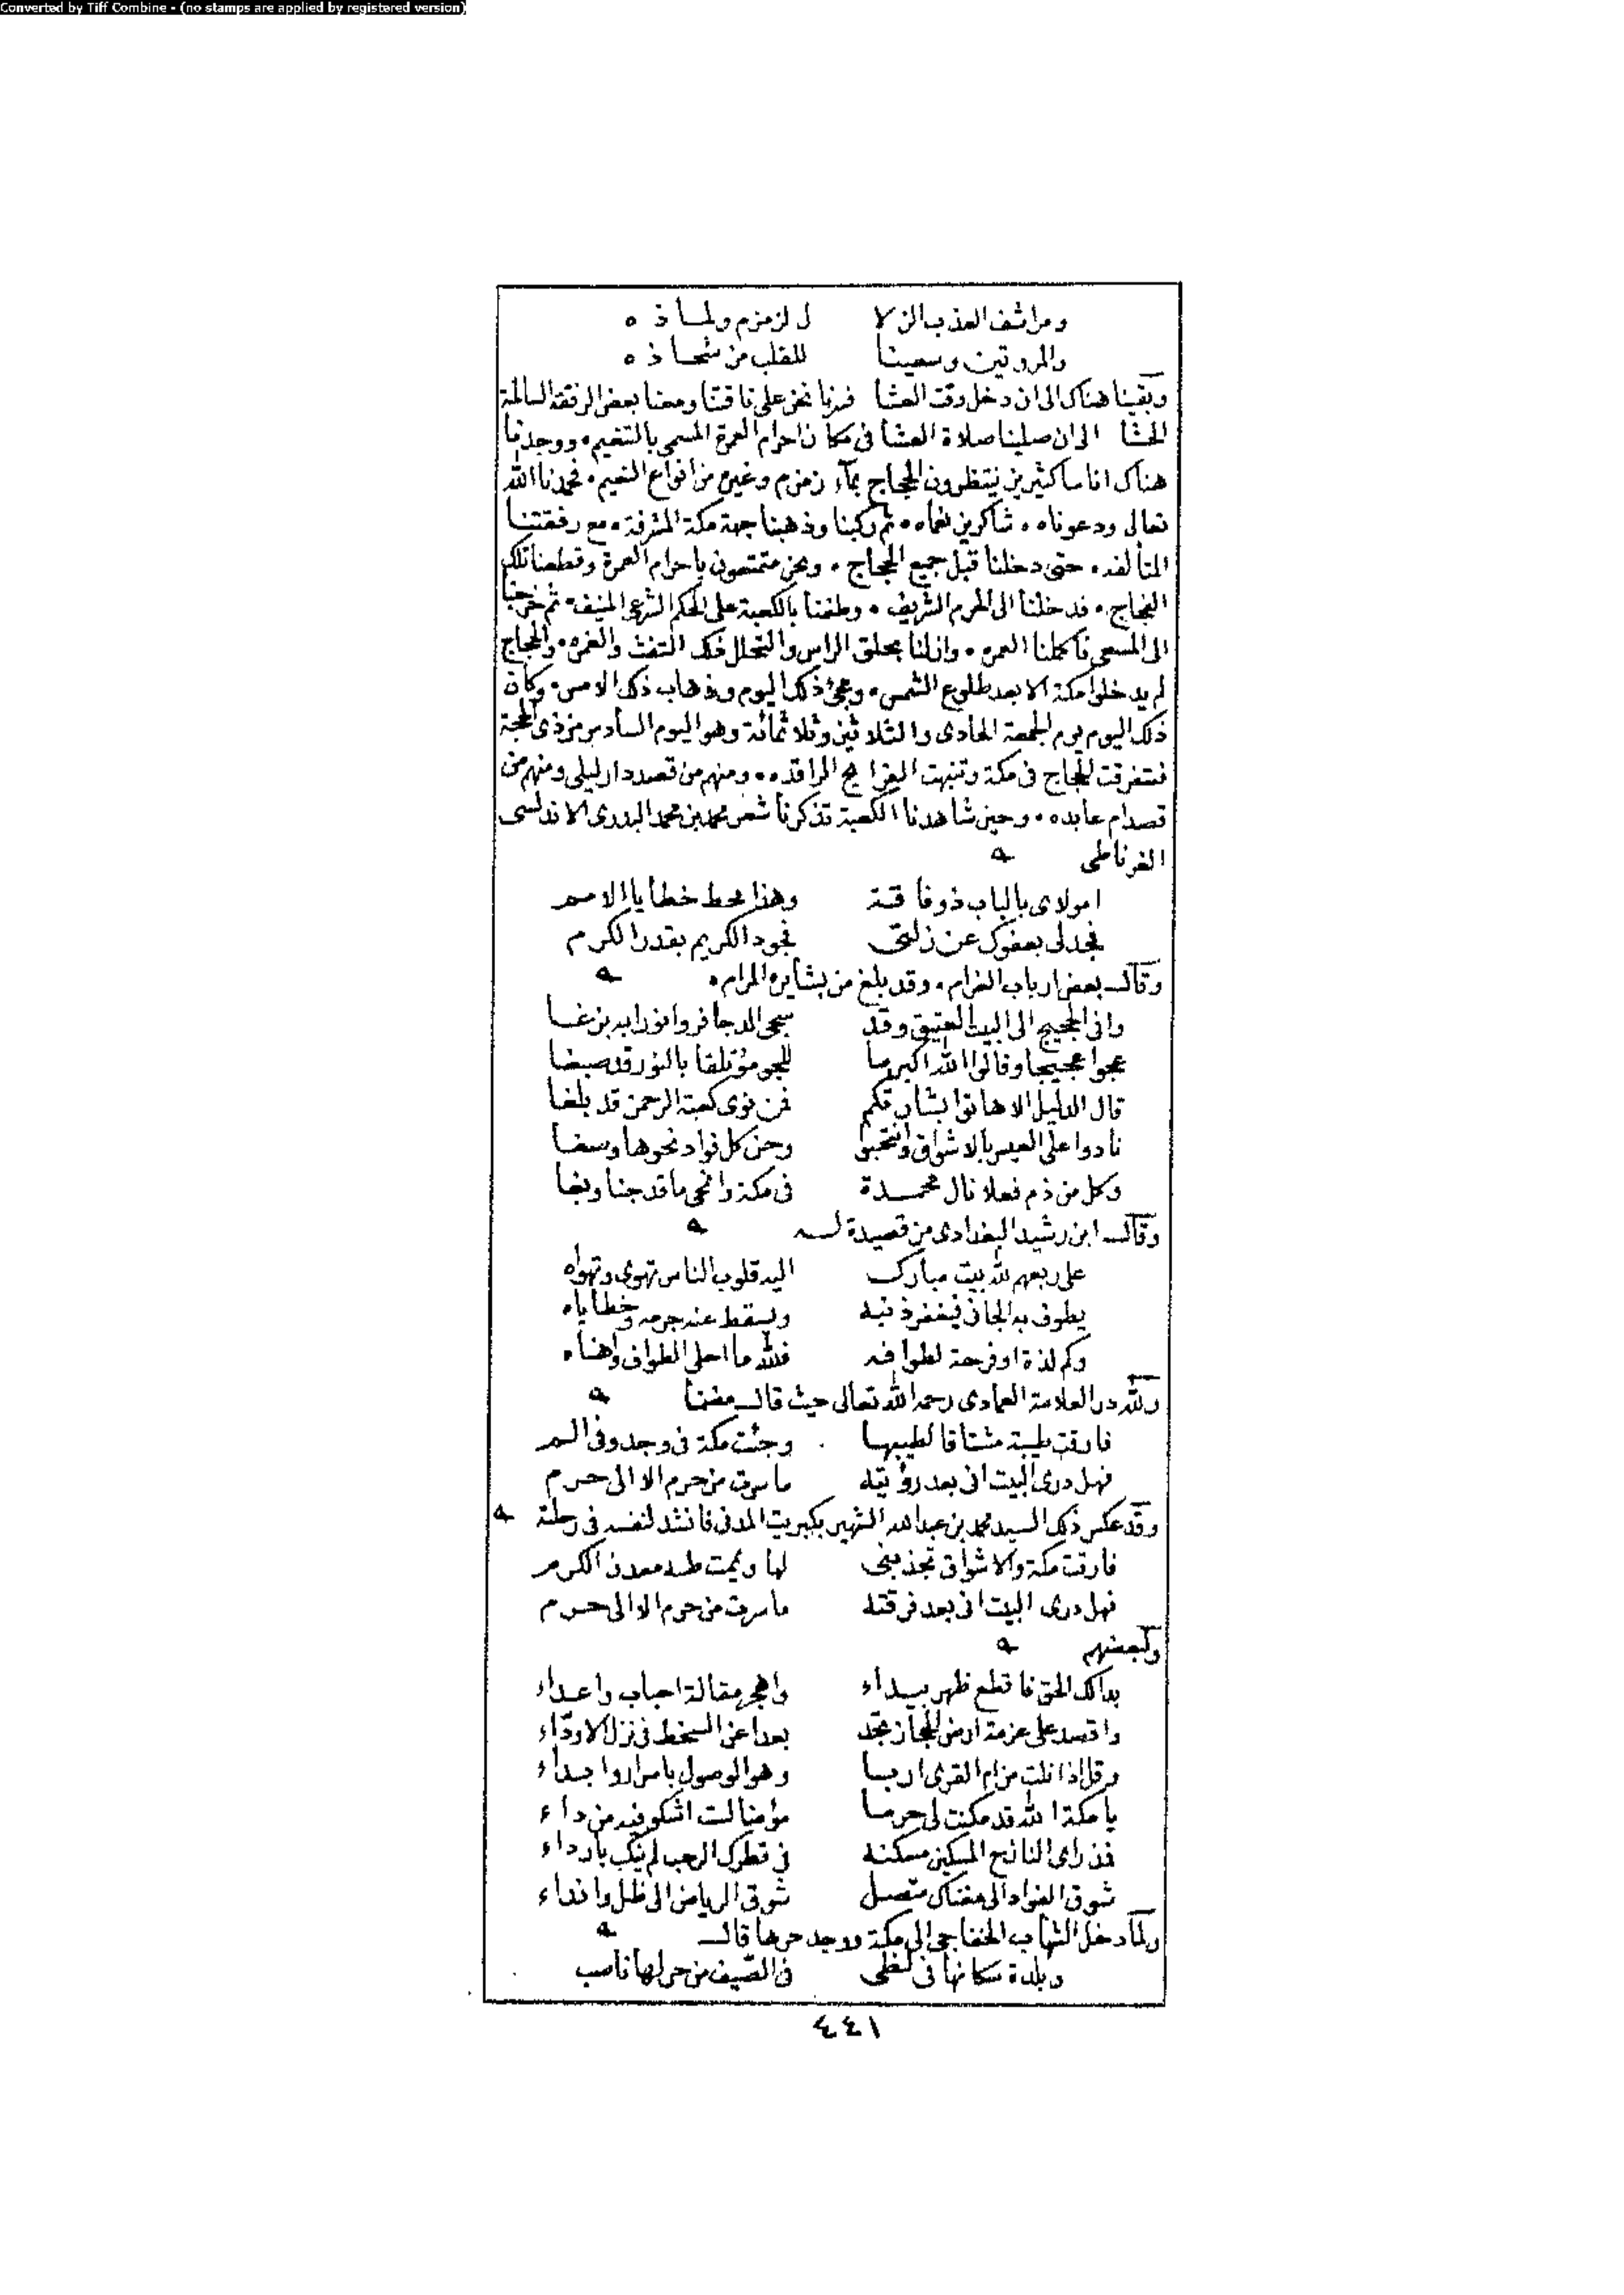 Converted by Tiff Combine - (no stamps are applied by registered version)
ومراشف العذب الزلا ل لزمزم ولماذه
والمروتين وسعينا للقلب من شحاذه
وبقينا هناك الى ان دخل وقت العشا فسرنا نحن على ناقتنا ومعنا بعض الرفقة السالمة
الحشا الى ان صلينا صلاة العشا فى مكان احرام العمرة المسمى بالتنعيم ووجدنا
هناك اناسا كثيرين ينتظرون الحجاج بمآء زمزم وغيره من انواع النعيم فحمدنا الله
تعالى ودعوناه شاكرين نعماه ثم ركبنا وذهبنا جهة مكة المشرفة مع رفقتنا
المتألفه حتى دخلنا قبل جميع الحجاج ونحن متمتعون باحرام العمرة وقطعنا تلك
الفجاج فدخلنا الى الحرم الشريف وطفنا بالكعبة على الحكم الشرعى المنيف ثم خرجنا
الى المسعى فاكملنا العمره وازلنا بحلق الراس والتحلل ذلك التفث والغمره والحجاج
لم يدخلوا مكة الا بعد طلوع الشمس ومجئ ذلك اليوم وذهاب ذلك الامس وكان
ذلك اليوم يوم الجمعة الحادى والثلاثين وثلاثمائة وهو اليوم السادس من ذى الحجة
فتفرقت الحجاج فى مكة وتنبهت المراقد ومنهم من قصد دار ليلى ومنهم من
قصد ام عابده وحين شاهدنا الكعبة تذكرنا شعر محمد بن محمد البدرى الاندلسى
الغرناطى
امولاى بالباب ذو فاقة وهذا محط خطايا الامم
فجد لى بعفوك عن زلتى فجود الكريم بقدر الكرم
وقال بعض ارباب الغرام وقد بلغ من بشايره المرام
وافى الحجيج الى البيت العتيق وقد سجى الدجا فروا نورا به بزغا
عجوا عجيجا وقالوا الله اكبر ما للجو مؤتلقا بالنور قد صبغا
قال الدليل الا هاتوا بشارتكم فمن نوى كعبة الرحمن قد بلغا
نادوا على العيس بالاشواق وانتحبوا وحن كل فواد نحوها وصغا
وكل من ذم فعلا نال محمدة فى مكة ومحى ما قد جنا وبغا
وقال ابن رشيد البغدادى من قصيدة له
على ربعهم لله بيت مبارك اليه قلوب الناس تهوى وتهواه
يطوف به الجانى فيغفر ذنبه ويسقط عنه جرمه وخطاياه
وكم لذة او فرحة لطوافه فلله ما احلى الطواف واهناه
ولله در العلامة العمادى رحمه الله تعالى حيث قال مضمنا
فارقت طيبة مشتاقا لطيبها وجئت مكة فى وجد وفى الم
فهل درى البيت انى بعد رؤيته ما سرت من حرم الا الى حرم
وقد عكس ذلك السيد محمد بن عبد الله الشهير بكبريت المدنى فانشد لنفسه فى رحلته
فارقت مكة والاشواق تجذبنى لها ويممت طه معدن الكرم
فهل درى البيت انى بعد فرقته ما سرت من حرم الا الى حرم
ولبعضهم
بدا لك الحق فاقطع ظهر بيداء واهجر مقالة احباب واعداء
واقصد على عزمة ارض الحجاز تجد بعدا عن السخط فى نزل الاودّاء
وقل اذا نلت من ام القرى اربا وهو الوصول باسرار وابداء
يا مكة الله قد مكنت لى حرما مؤمنا لست اشكو فيه من داء
فمذ راى النازح المسكين مسكنه فى قطرك الرحب لم ينكب بارداء
شوق الفواد الى مغناك متصل شوق الرياض الى ظل وانداء
ولما دخل الشهاب الخفاجى الى مكة ووجد حرها قال
وبلدة سكانها فى لظى فى الصيف من حر لها ناصب
٤٤١